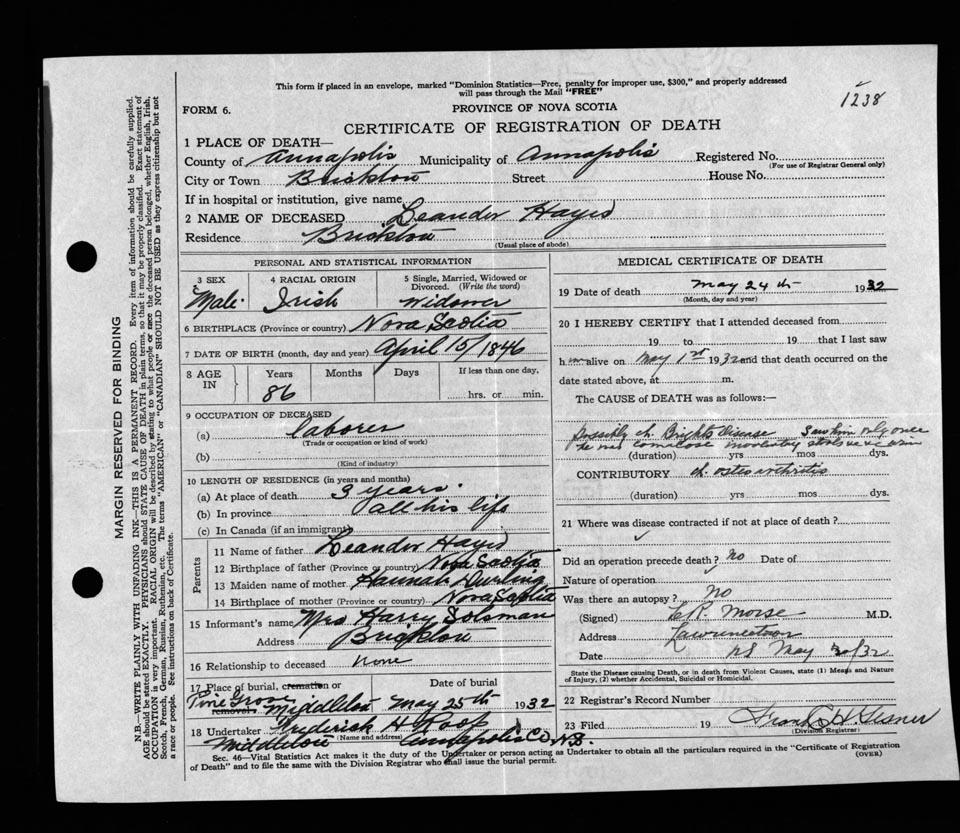 This form if placed in an envelope, marked "Dominion Statistics—Free, penalty for improper use, $300," and properly addressed
will pass through the Mail "FREE"
1238
FORM 6.
PROVINCE OF NOVA SCOTIA
CERTIFICATE OF REGISTRATION OF DEATH
MARGIN RESERVED FOR BINDING
N.B.—WRITE PLAINLY WITH UNFADING INK—THIS IS A PERMANENT RECORD. Every item of information should be carefully supplied.
AGE should be stated EXACTLY. PHYSICIANS should STATE CAUSE OF DEATH in plain terms, so that it may be properly classified. Exact statement of
OCCUPATION is very important. RACIAL ORIGIN will be described by stating to what people or race the deceased person belonged, whether English, Irish,
Scotch, French, German, Russian, Ruthenian, etc. The terms "AMERICAN" or "CANADIAN" SHOULD NOT BE USED as they express citizenship but not
a race or people. See instructions on back of Certificate.
1 PLACE OF DEATH—
County of Annapolis Municipality of Annapolis Registered No.
(For use of Registrar General only)
City or Town Brickton Street House No.
If in hospital or institution, give name
2 NAME OF DECEASED Leander Hayes
Residence Brickton
(Usual place of abode)
PERSONAL AND STATISTICAL INFORMATION
3 SEX Male
4 RACIAL ORIGIN Irish
5 Single, Married, Widowed or Divorced. (Write the word) Widower
6 BIRTHPLACE (Province or country) Nova Scotia
7 DATE OF BIRTH (month, day and year) April 15/1846
8 AGE IN Years Months Days If less than one day,
86 hrs. or min.
9 OCCUPATION OF DECEASED
(a) laborer
(Trade or occupation or kind of work)
(b)
(Kind of industry)
10 LENGTH OF RESIDENCE (in years and months)
(a) At place of death 3 years.
(b) In province all his life
(c) In Canada (if an immigrant)
Parents
11 Name of father Leander Hayes
12 Birthplace of father (Province or country) Nova Scotia
13 Maiden name of mother Hannah Durling
14 Birthplace of mother (Province or country) Nova Scotia
15 Informant's name Mrs Harry Soloman
Address Brickton
16 Relationship to deceased none
17 Place of burial, cremation or removal Date of burial
Pine Grove Middleton May 25th 1932
18 Undertaker Frederick H Roop
(Name and address)
Middleton Annapolis Co N.S.
MEDICAL CERTIFICATE OF DEATH
19 Date of death May 24th 1932
(Month, day and year)
20 I HEREBY CERTIFY that I attended deceased from
19 to 19 that I last saw
him alive on May 1st 1932 and that death occurred on the
date stated above, at m.
The CAUSE of DEATH was as follows:—
possibly ch. Brights Disease Saw him only once
he was comatose
(duration) yrs mos dys.
CONTRIBUTORY ch. osteo arthritis
(duration) yrs mos dys.
21 Where was disease contracted if not at place of death?
Did an operation precede death? No Date of
Nature of operation
Was there an autopsy? No
(Signed) L.R. Morse M.D.
Address Lawrencetown
Date NS May 30/32
State the Disease causing Death, or in death from Violent Causes, state (1) Means and Nature
of Injury, (2) whether Accidental, Suicidal or Homicidal.
22 Registrar's Record Number
23 Filed 19 Frank H. Gesner
(Division Registrar)
Sec. 46—Vital Statistics Act makes it the duty of the Undertaker or person acting as Undertaker to obtain all the particulars required in the "Certificate of Registration
of Death" and to file the same with the Division Registrar who shall issue the burial permit.
(OVER)